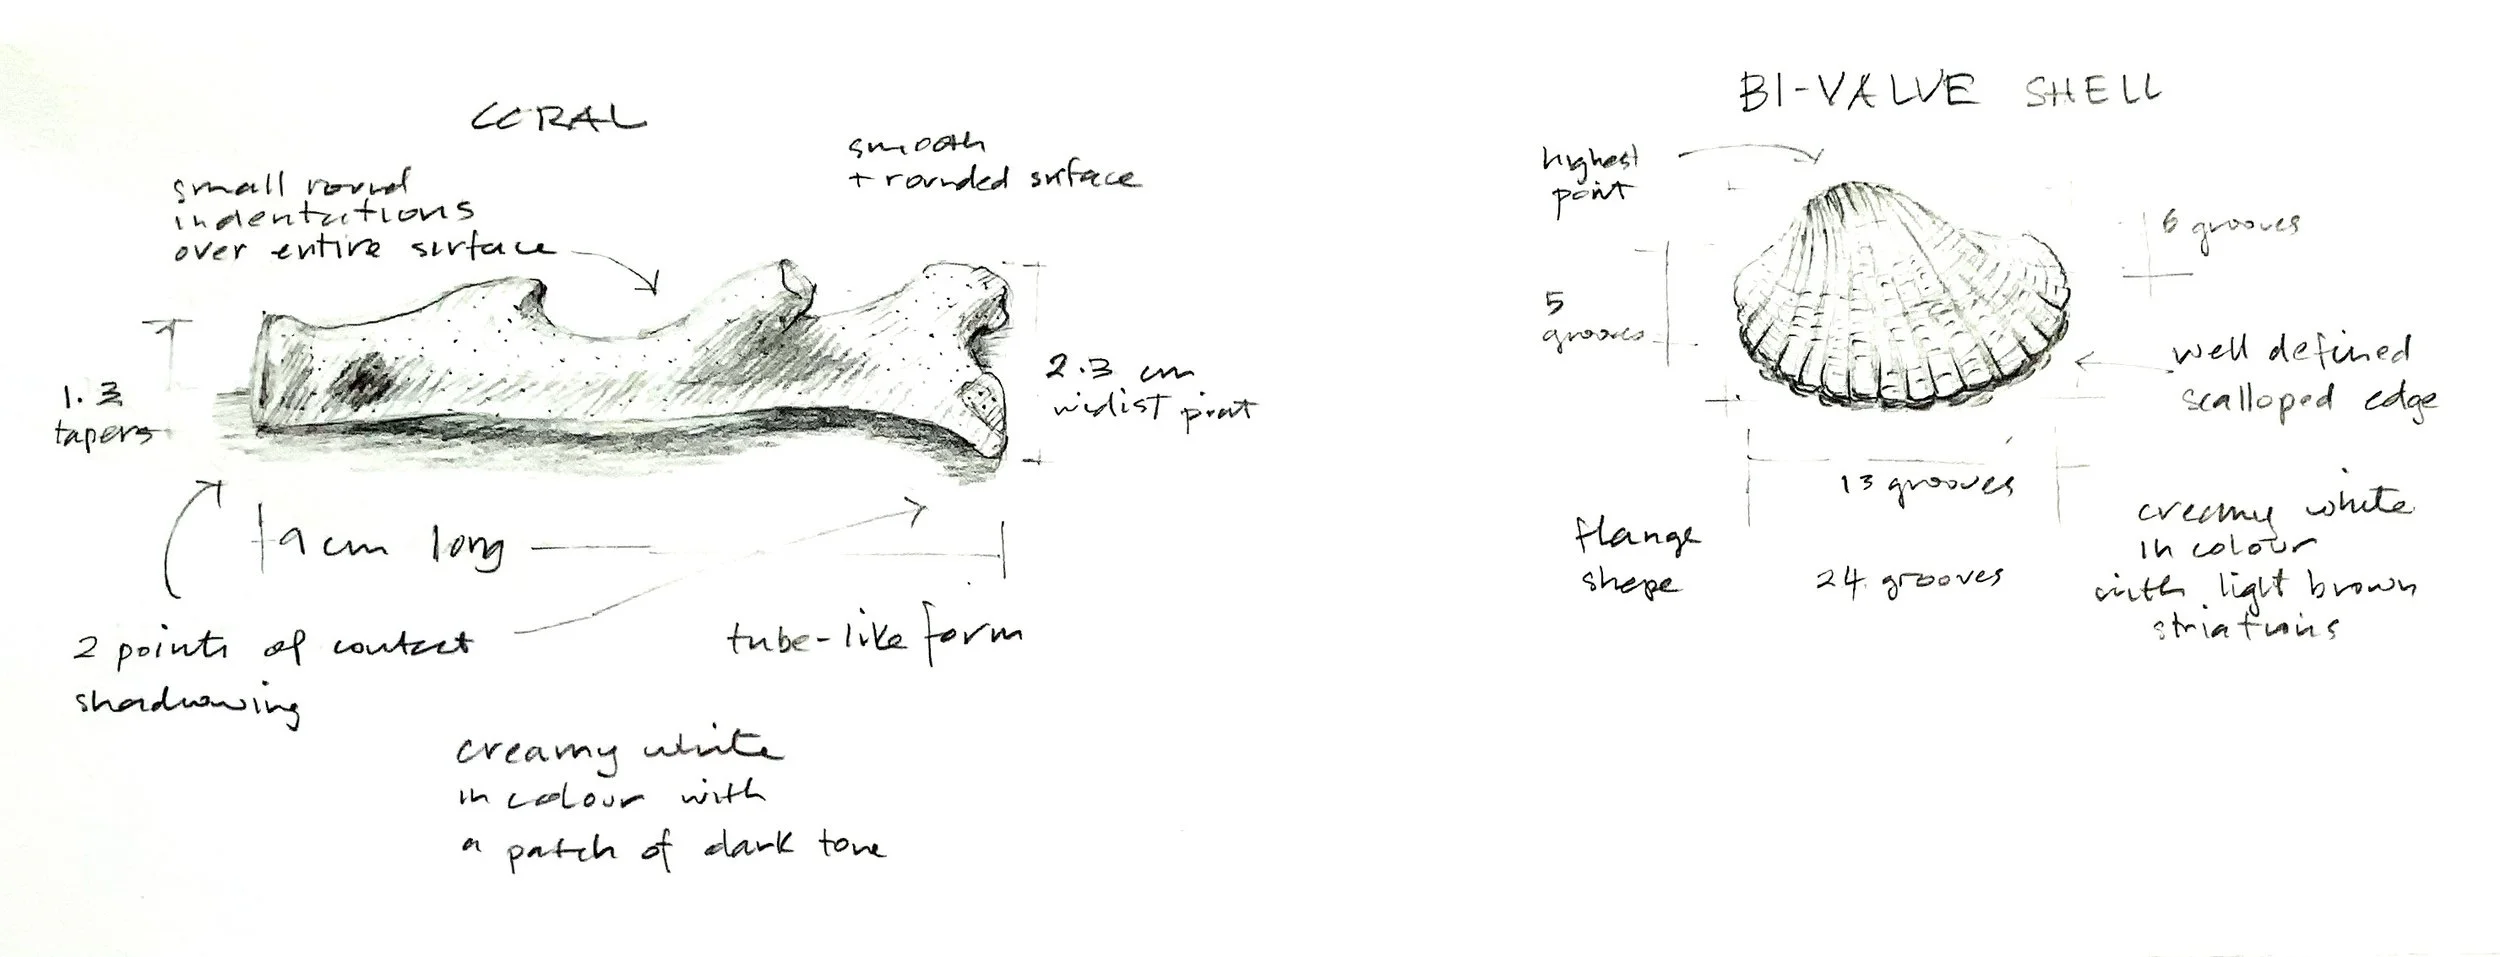 CORAL
small round
indentations
over entire surface
smooth
+ rounded surface
1.3
tapers
2.3 cm
widist point
9cm long
2 points of contact
shadowing
tube-like form
creamy white
in colour with
a patch of dark tone
BI-VALVE SHELL
highest
point
6 grooves
5
grooves
well defined
scalloped edge
13 grooves
flange
shape
24 grooves
creamy white
in colour
with light brown
striations